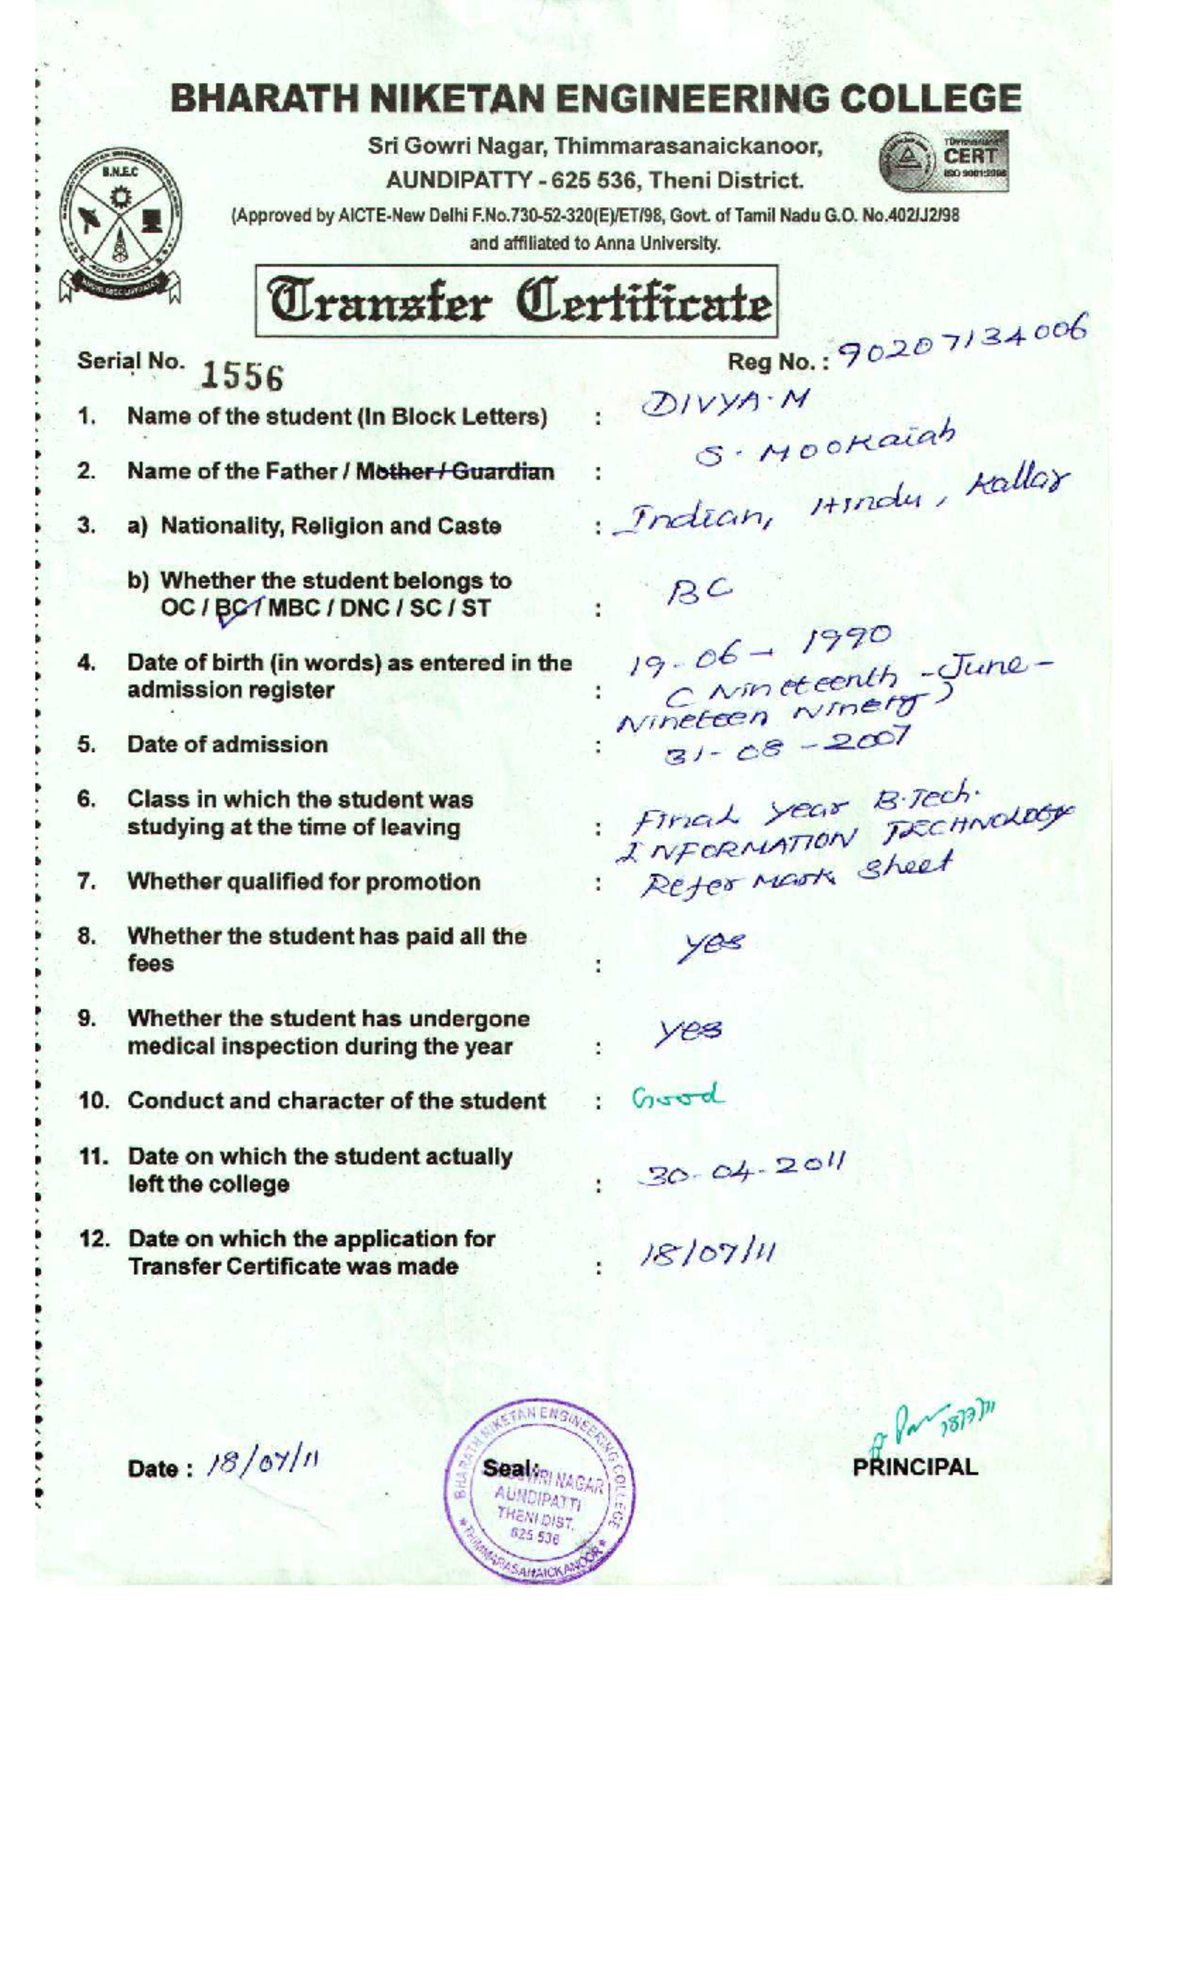 BHARATH NIKETAN ENGINEERING COLLEGE
Sri Gowri Nagar, Thimmarasanaickanoor,
AUNDIPATTY - 625 536, Theni District.
(Approved by AICTE-New Delhi F.No.730-52-320(E)/ET/98, Govt. of Tamil Nadu G.O. No.402/J2/98
and affiliated to Anna University.
B.N.E.C
CERT
ISO 9001:2008
Transfer Certificate
Serial No. 1556
Reg No. : 90207134006
1. Name of the student (In Block Letters) : DIVYA.M
2. Name of the Father / Mother / Guardian : S. MOOKaiah
3. a) Nationality, Religion and Caste : Indian, Hindu, Kallar
b) Whether the student belongs to
OC / BC / MBC / DNC / SC / ST : BC
4. Date of birth (in words) as entered in the
admission register : 19-06-1990
(Nineteenth - June -
Nineteen Ninety)
5. Date of admission : 31-08-2007
6. Class in which the student was
studying at the time of leaving : Final year B.Tech.
INFORMATION TECHNOLOGY
7. Whether qualified for promotion : Refer Mark Sheet
8. Whether the student has paid all the
fees : yes
9. Whether the student has undergone
medical inspection during the year : yes
10. Conduct and character of the student : Good
11. Date on which the student actually
left the college : 30-04-2011
12. Date on which the application for
Transfer Certificate was made : 18/07/11
Date : 18/07/11
Seal:
BHARATH NIKETAN ENGINEERING COLLEGE
WRI NAGAR
AUNDIPATTI
THENI DIST.
625 536
* THIMMARASANAICKANOOR *
18/7/11
PRINCIPAL